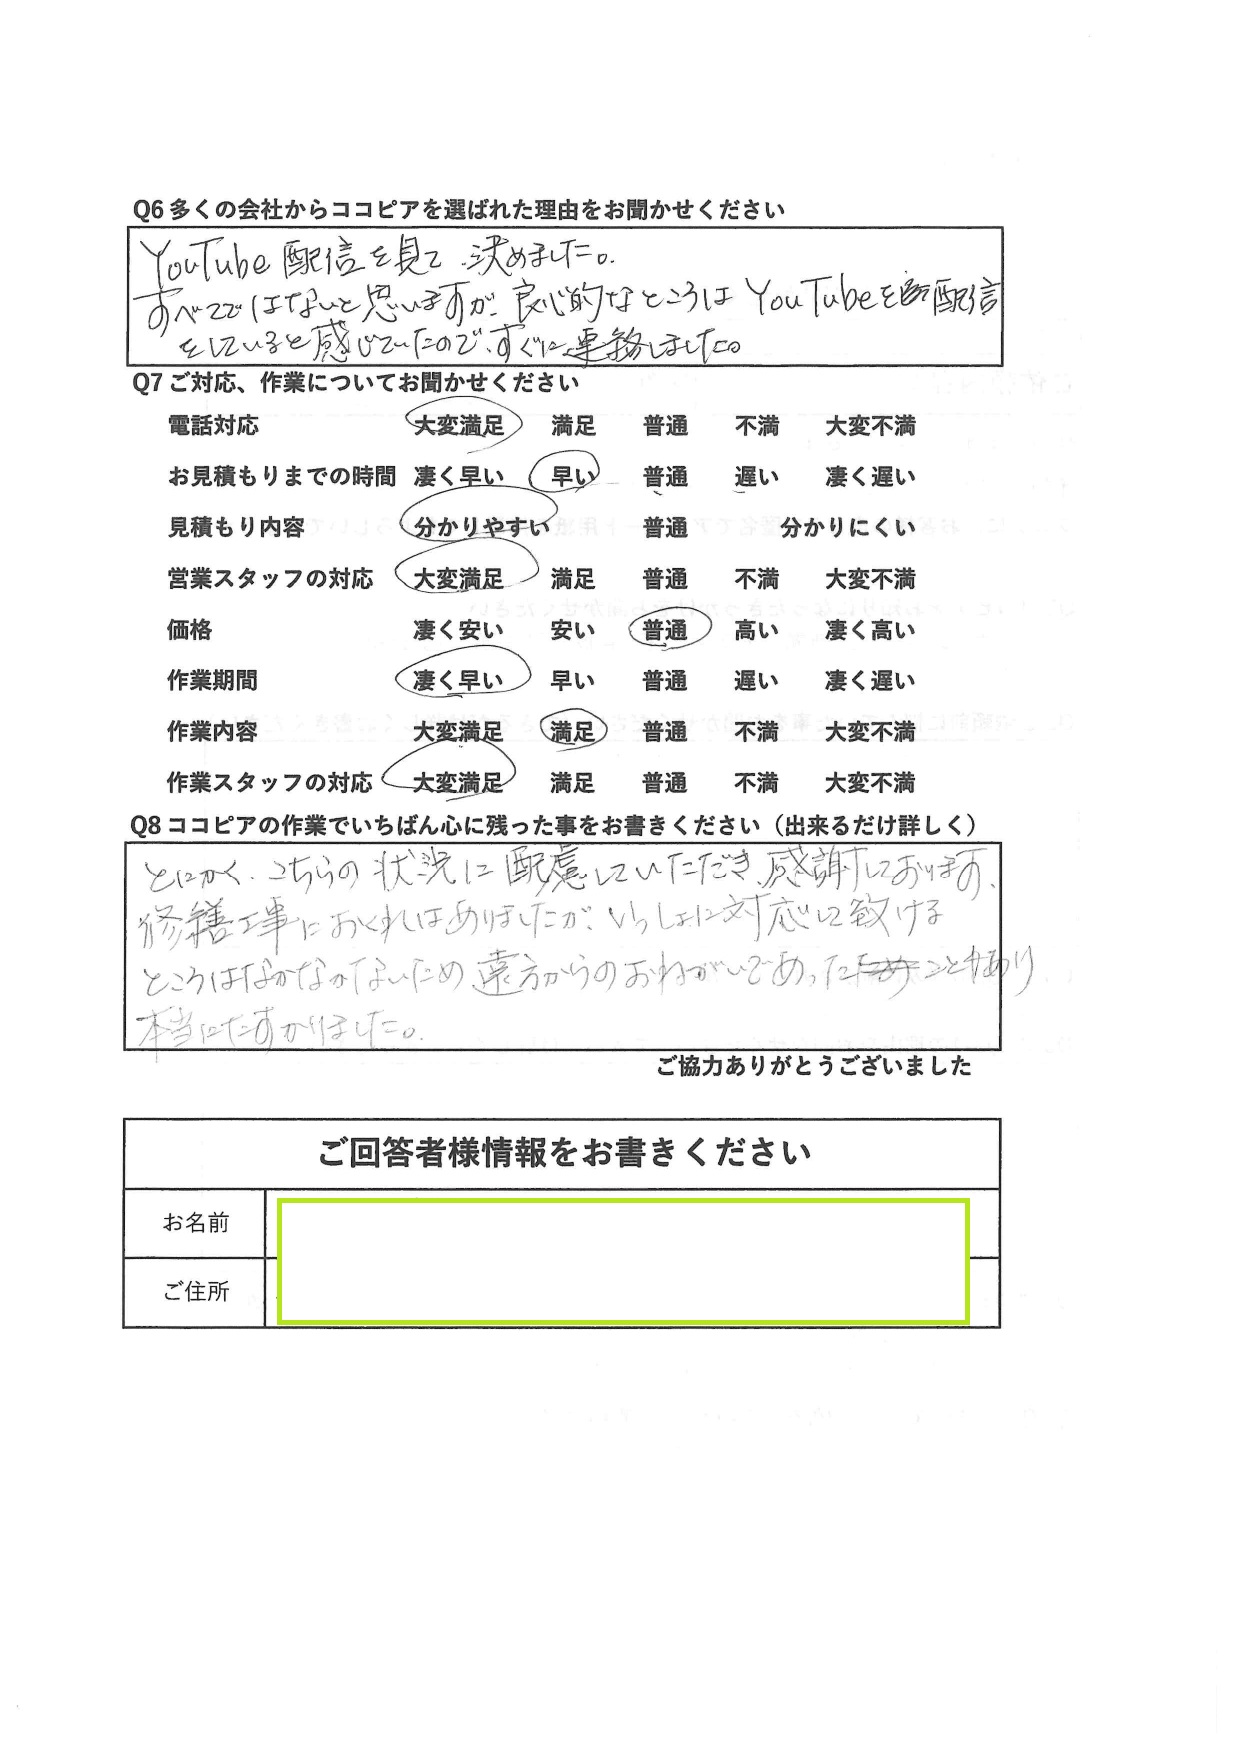 Q6 多くの会社からココピアを選ばれた理由をお聞かせください
YouTube 配信を見て 決めました。
すべてではないと思いますが、良心的なところは YouTubeを配信
をしていると感じていたので、すぐに連絡しました。
Q7 ご対応、作業についてお聞かせください
電話対応 大変満足 満足 普通 不満 大変不満
お見積もりまでの時間 凄く早い 早い 普通 遅い 凄く遅い
見積もり内容 分かりやすい 普通 分かりにくい
営業スタッフの対応 大変満足 満足 普通 不満 大変不満
価格 凄く安い 安い 普通 高い 凄く高い
作業期間 凄く早い 早い 普通 遅い 凄く遅い
作業内容 大変満足 満足 普通 不満 大変不満
作業スタッフの対応 大変満足 満足 普通 不満 大変不満
Q8 ココピアの作業でいちばん心に残った事をお書きください（出来るだけ詳しく）
とにかく、こちらの状況に配慮していただき、感謝しております、
修繕工事におくれはありましたが、いっしょに対応して致ける
ところはなかなかないため 遠方からのおねがいであったこともあり
本当にたすかりました。
ご協力ありがとうございました
ご回答者様情報をお書きください
お名前
ご住所